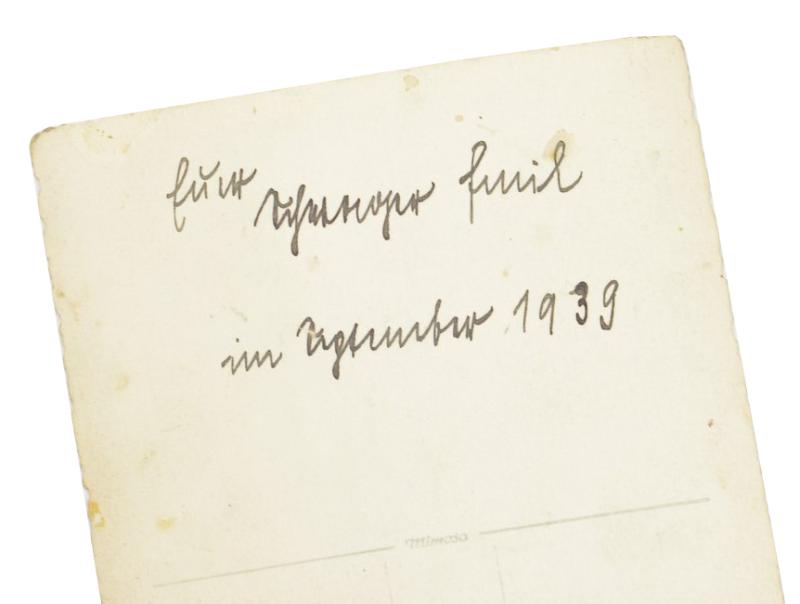 Euer Schwager Emil
im September 1939
Mimosa